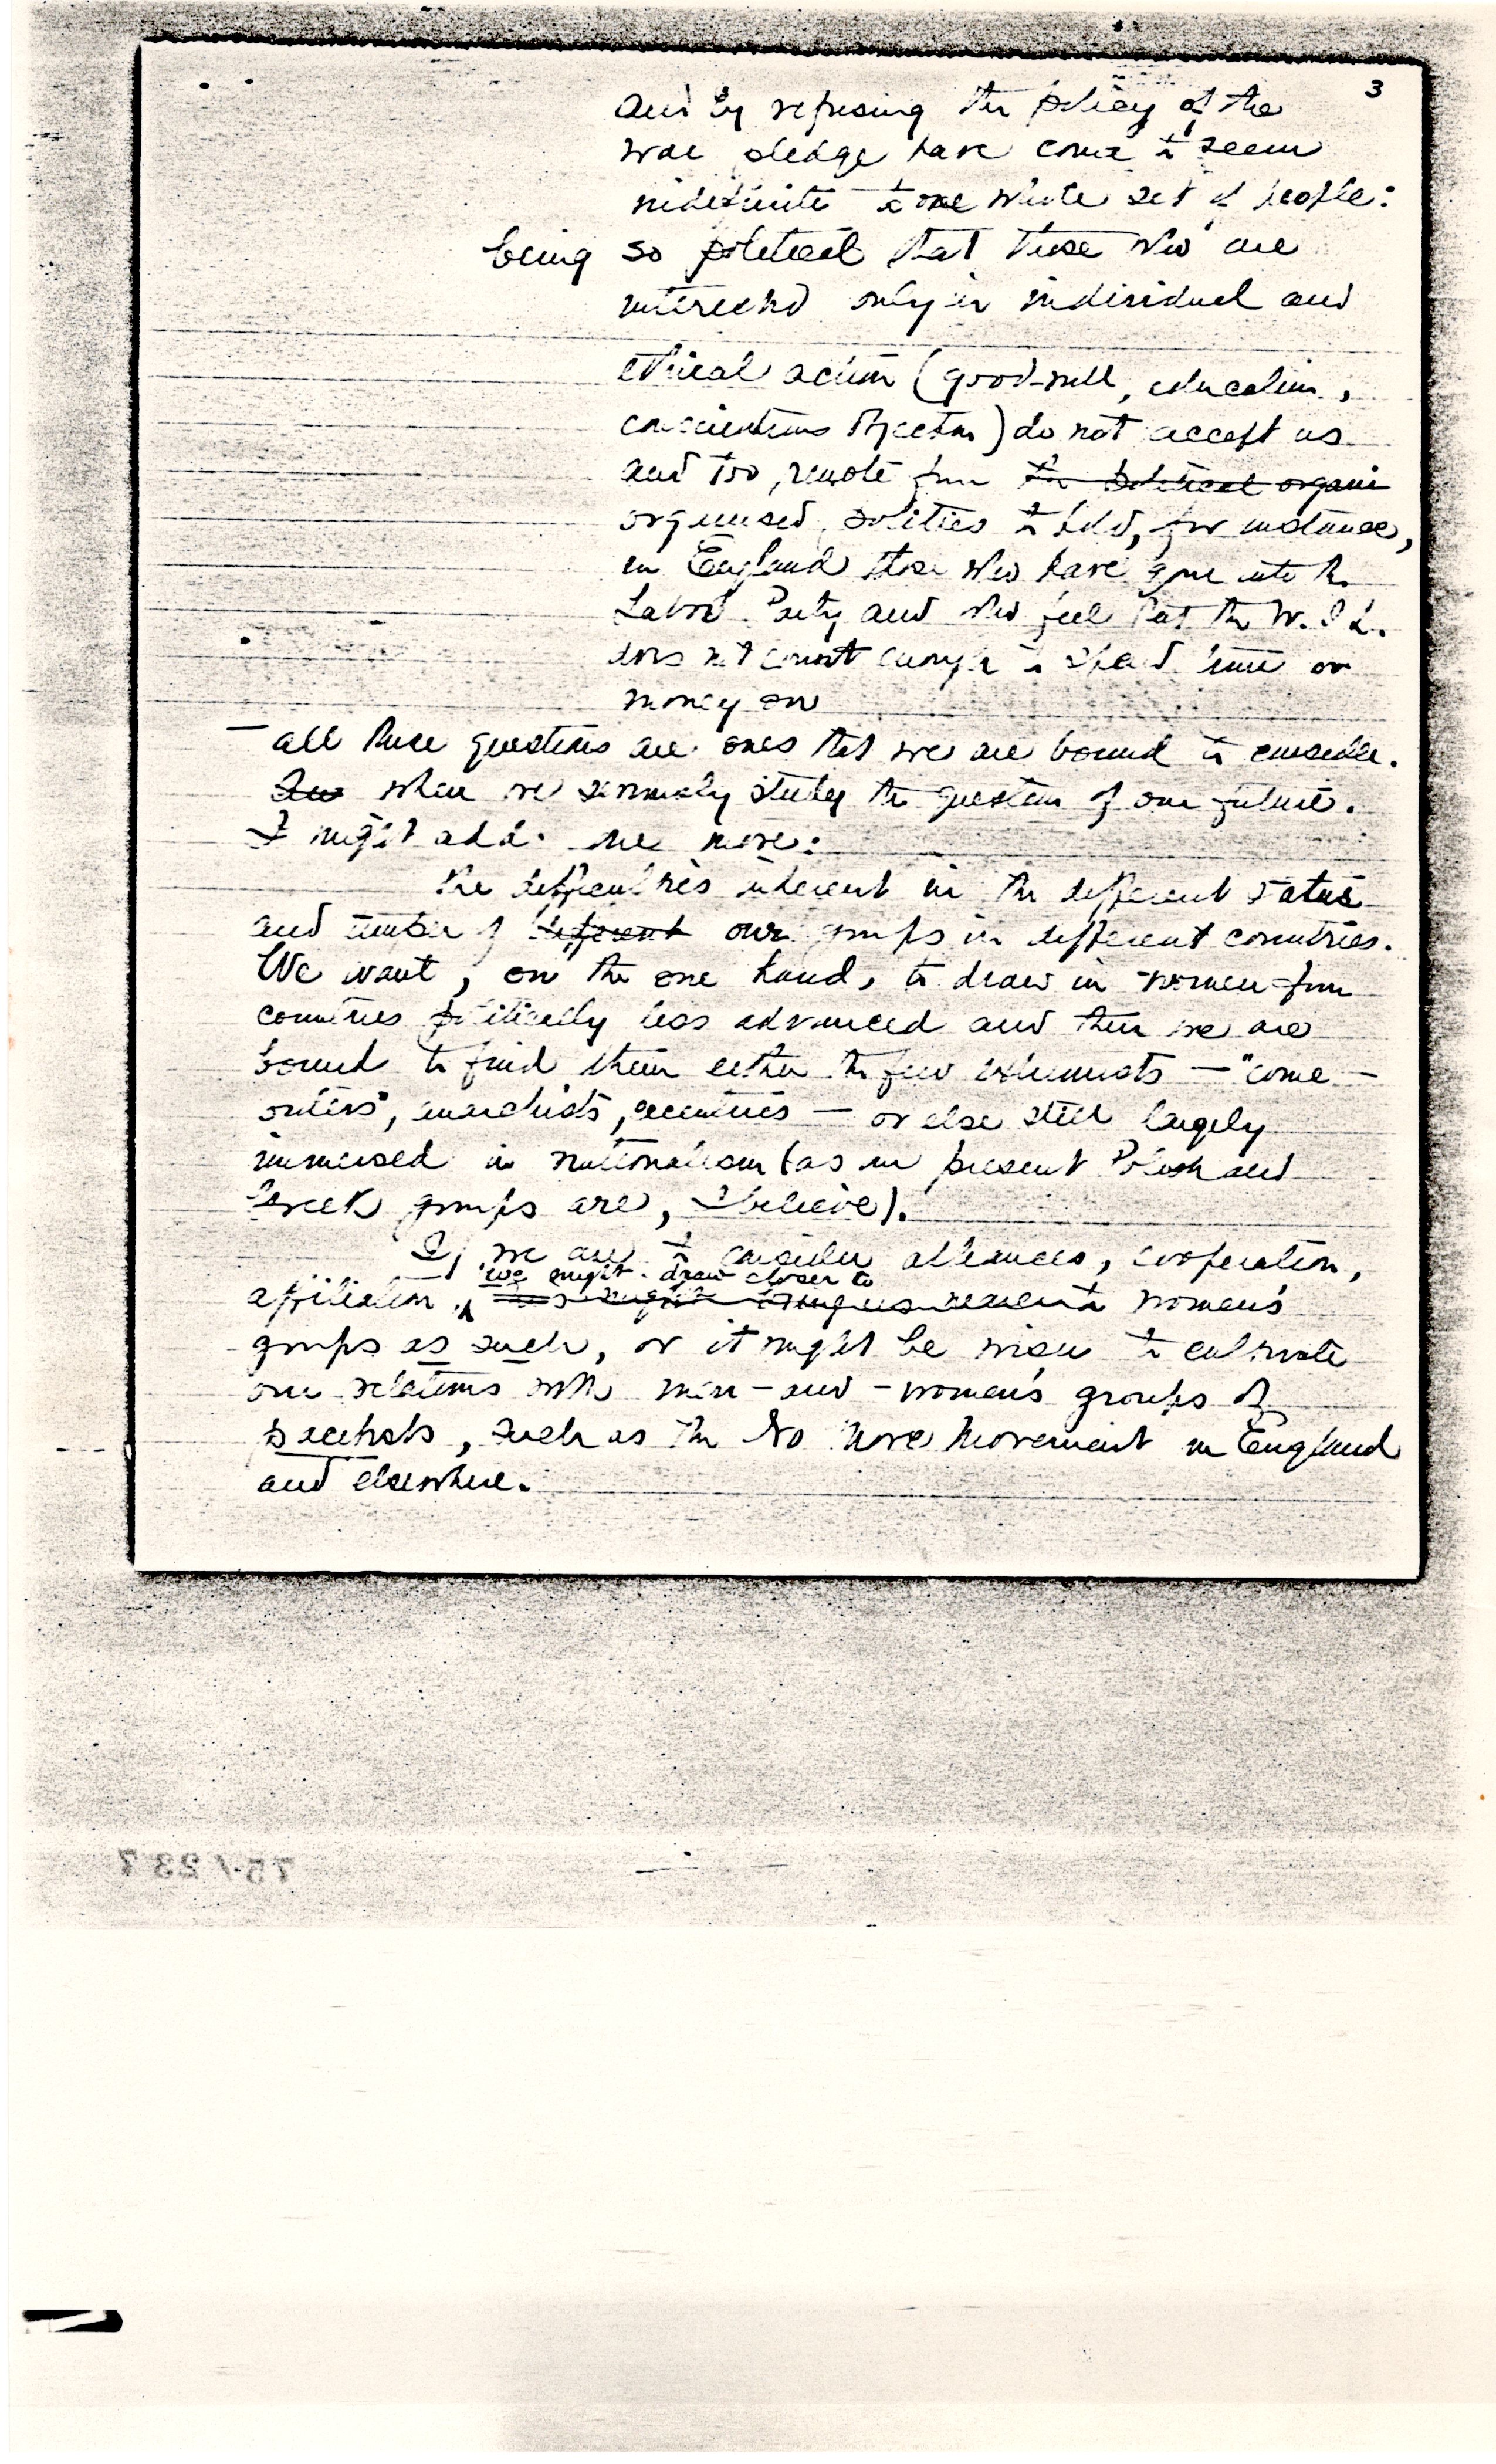 3
and by refusing the policy of the
war pledge have come to seem
indefinite to one whole set of people:
being so political that those who are
interested only in individual and
ethical action (good-will, education,
conscientious objection) do not accept us
and too remote from the political organi
organised politics to hold, for instance,
in England those who have gone into the
Labor Party and who feel that the W.I.L.
does not count enough to spend time or
money on
— all these questions are ones that we are bound to consider.
when we seriously study the question of our future.
I might add one more:
the difficulties inherent in the different status
and number of different our groups in different countries.
We want, on the one hand, to draw in women from
countries politically less advanced and then we are
bound to find them either the few extremists — "come-
outers", anarchists, eccentrics — or else still largely
immersed in nationalism (as in present Polish and
Greek groups are, I believe).
If we are to consider alliances, cooperation,
we might draw closer to
affiliation, women's
groups as such, or it might be wise to cultivate
our relations with men-and-women's groups of
pacifists, such as the No More Movement in England
and elsewhere.
75/237